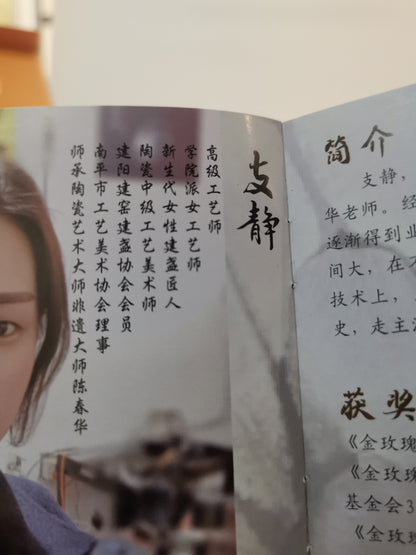 支静
高级工艺师
学院派女工艺师
新生代女性建盏匠人
陶瓷中级工艺美术师
建阳建窑建盏协会会员
南平市工艺美术协会理事
师承陶瓷艺术大师非遗大师陈春华
简介
支静，
华老师。经
逐渐得到业
间大，在不
技术上，
史，走主流
获奖
《金玫瑰
《金玫瑰
基金会3
《金玫瑰